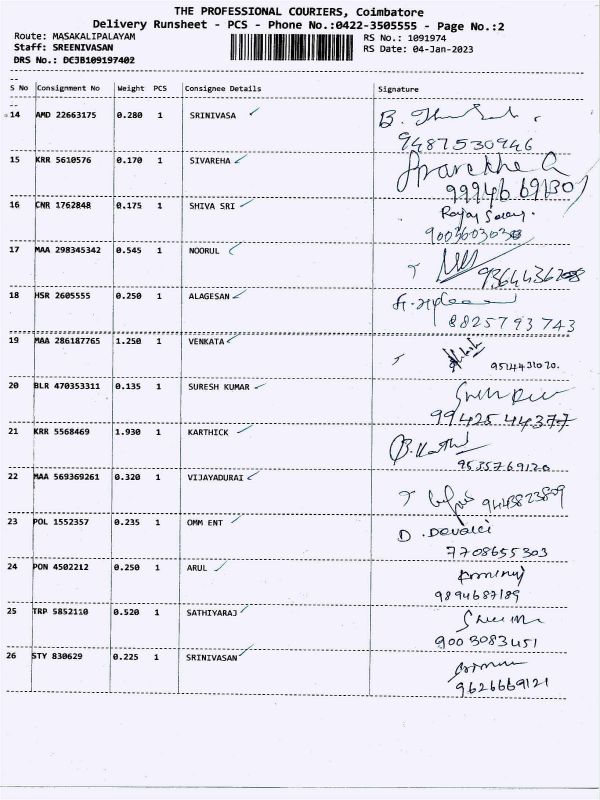 THE PROFESSIONAL COURIERS, Coimbatore
Delivery Runsheet - PCS - Phone No.:0422-3505555 - Page No.:2
Route: MASAKALIPALAYAM RS No.: 1091974
Staff: SREENIVASAN RS Date: 04-Jan-2023
DRS No.: DC3B109197402
S No Consignment No Weight PCS Consignee Details Signature
14 AMD 22663175 0.280 1 SRINIVASA
9487530946
15 KRR 5610576 0.170 1 SIVAREHA
16 CNR 1762848 0.175 1 SHIVA SRI
17 MAA 298345342 0.545 1 NOORUL
18 HSR 2605555 0.250 1 ALAGESAN
8825793743
19 MAA 286187765 1.250 1 VENKATA
9514431020.
20 BLR 470353311 0.135 1 SURESH KUMAR
9942544377
21 KRR 5568469 1.930 1 KARTHICK
9535769120
22 MAA 569369261 0.320 1 VIJAYADURAI
9443823809
23 POL 1552357 0.235 1 OMM ENT D. Devaki
7708655303
24 PON 4502212 0.250 1 ARUL
9894687189
25 TRP 5852110 0.520 1 SATHIYARAJ
9003083451
26 STY 830629 0.225 1 SRINIVASAN
9626669121